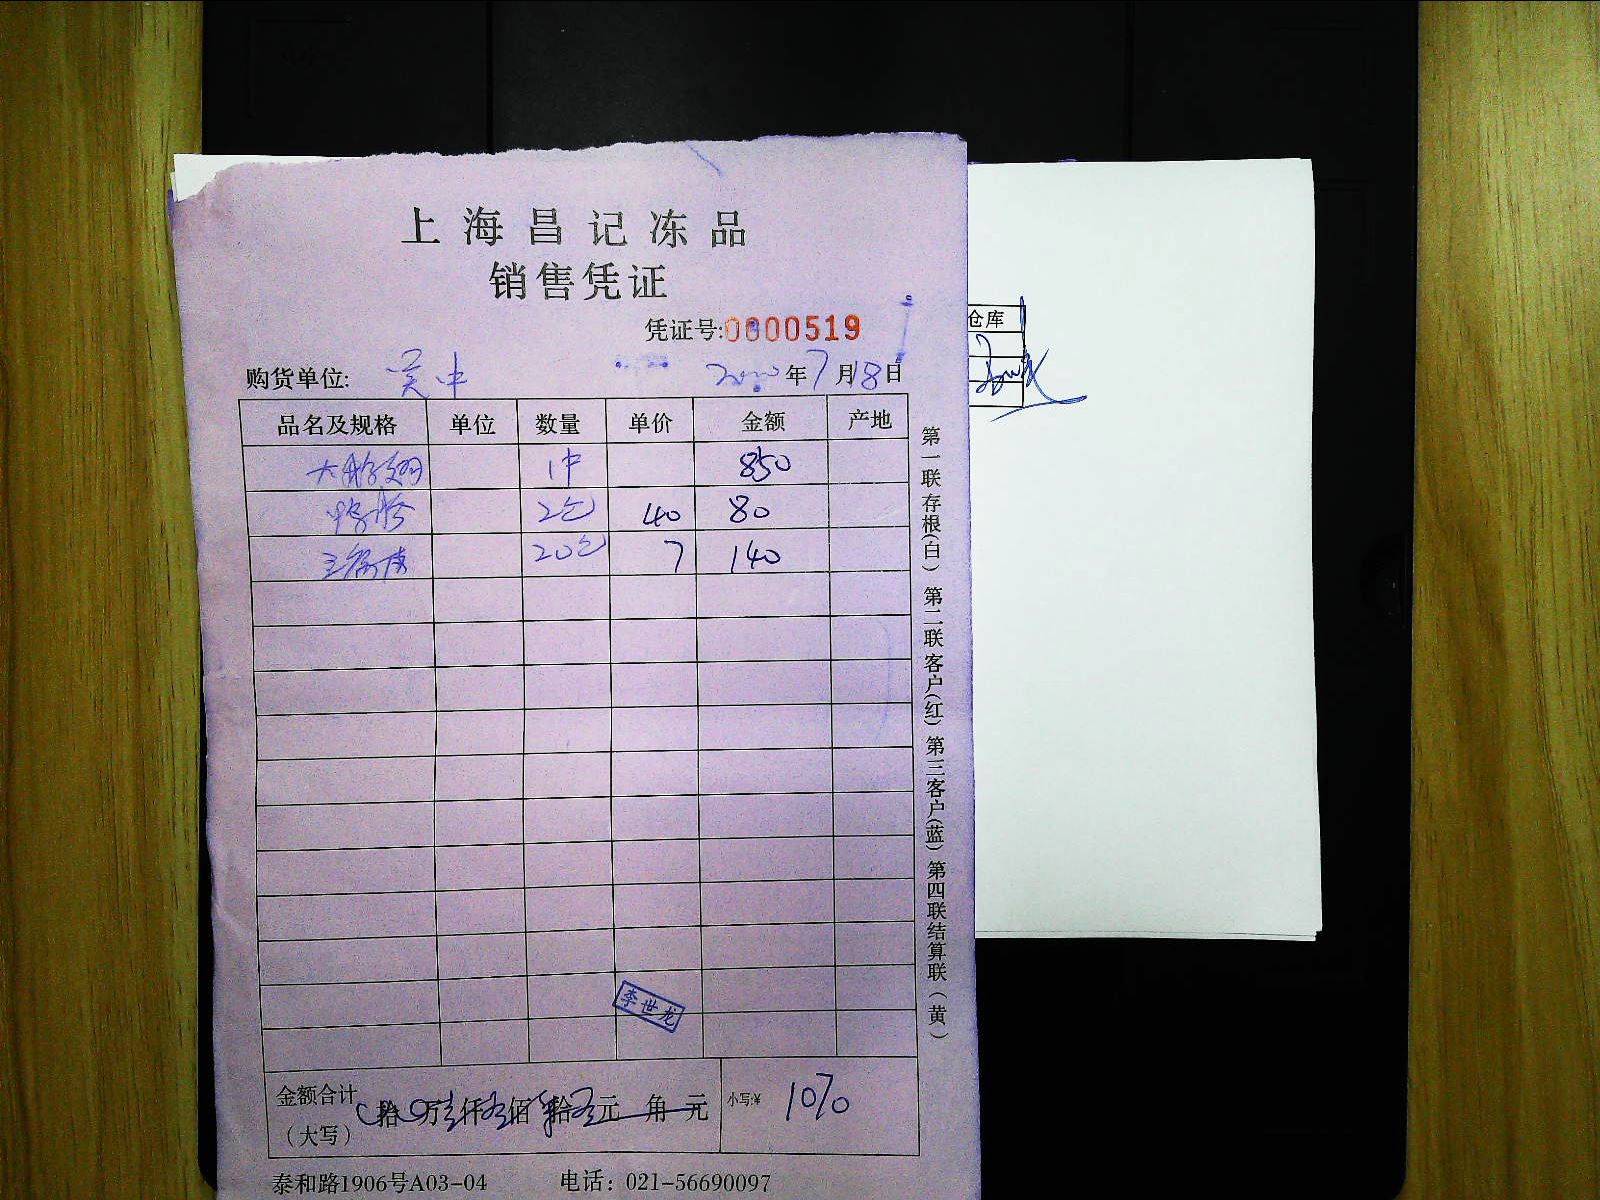 上海昌记冻品
销售凭证
凭证号:0000519
购货单位: 吴中 年7月18日
品名及规格 单位 数量 单价 金额 产地
1中 850
2包 40 80
20包 7 140
李世龙
金额合计(大写) 拾 万 仟 佰 拾 元 角 元 小写:¥ 1070
泰和路1906号A03-04 电话: 021-56690097
第一联存根(白) 第二联客户(红) 第三客户(蓝) 第四联结算联(黄)
仓库